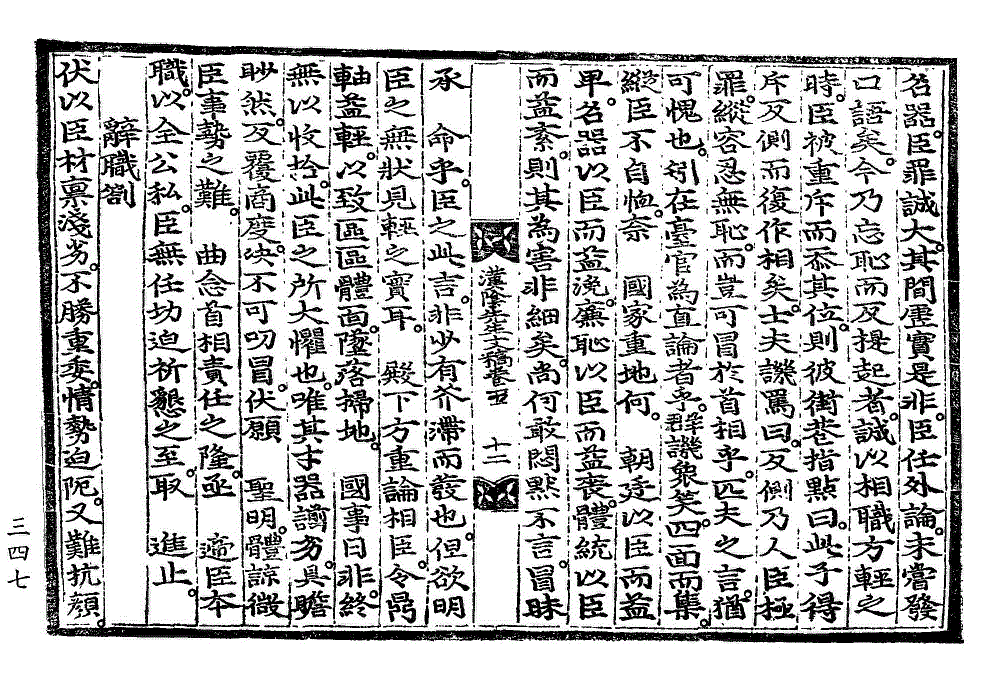 名器。臣罪誠大。其間虛實是非。臣任外論。未嘗發
口語矣。今乃忘恥而反提起者。誠以相職方輕之
時。臣被重斥而忝其位。則彼街巷指點曰。此子得
斥反側而復作相矣。士夫譏罵曰。反側乃人臣極
罪。縱容忍無恥。而豈可冒於首相乎。匹夫之言。猶
可愧也。矧在臺官爲直論者乎。群譏衆笑。四面而集。
縱臣不自恤。奈 國家重地何。 朝廷以臣而益
卑。名器以臣而益浼。廉恥以臣而益喪。體統以臣
而益紊。則其爲害非細矣。尚何敢悶默不言。冒昧
漢陰先生文稿卷之五 十二
承 命乎。臣之此言。非必有芥滯而發也。但欲明
臣之無狀見輕之實耳。 殿下方重論相臣。令鼎
軸益輕。以致區區體面。墜落掃地。 國事日非。終
無以收拾。此臣之所大懼也。唯其才器謭劣。具瞻
眇然。反覆商度。決不可叨冒。伏願 聖明。體諒微
臣事勢之難。 曲念首相責任之隆。亟 遞臣本
職。以全公私。臣無任功迫祈懇之至。取 進止。
辭職劄
伏以臣材稟淺劣。不勝重乘。情勢迫阨。又難抗顏。
三四七